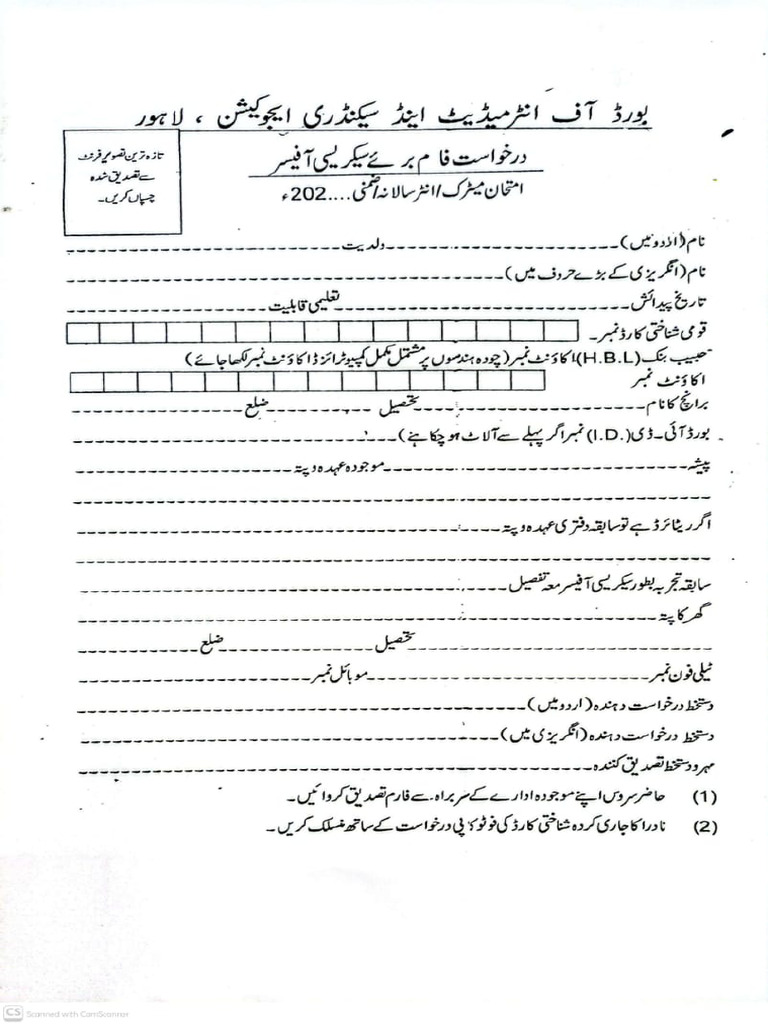 بورڈ آف انٹرمیڈیٹ اینڈ سیکنڈری ایجوکیشن ، لاہور
درخواست فام برائے سیکریسی آفیسر
امتحان میٹرک/انٹر سالانہ/ضمنی ....202ء
تازہ ترین تصویر فرنٹ
سے تصدیق شدہ
چسپاں کریں۔
نام (اردو میں) ولدیت
نام (انگریزی کے بڑے حروف میں)
تاریخ پیدائش تعلیمی قابلیت
قومی شناختی کارڈ نمبر۔
حبیب بنک (H.B.L) اکاؤنٹ نمبر (چودہ ہندسوں پر مشتمل مکمل کمپیوٹرائزڈ اکاؤنٹ نمبر لکھا جائے)
اکاؤنٹ نمبر
برانچ کا نام تحصیل ضلع
بورڈ آئی۔ڈی (I.D.) نمبر اگر پہلے سے آلاٹ ہو چکا ہے)
پیشہ موجودہ عہدہ و پتہ
اگر ریٹائرڈ ہے تو سابقہ دفتری عہدہ و پتہ
سابقہ تجربہ بطور سیکریسی آفیسر معہ تفصیل
گھر کا پتہ
تحصیل ضلع
ٹیلی فون نمبر موبائل نمبر
دستخط درخواست دہندہ (اردو میں)
دستخط درخواست دہندہ (انگریزی میں)
مہر و دستخط تصدیق کنندہ
(1) حاضر سروس اپنے موجودہ ادارے کے سربراہ سے فارم تصدیق کروائیں۔
(2) نادرا کا جاری کردہ شناختی کارڈ کی فوٹو کاپی درخواست کے ساتھ منسلک کریں۔
CS Scanned with CamScanner